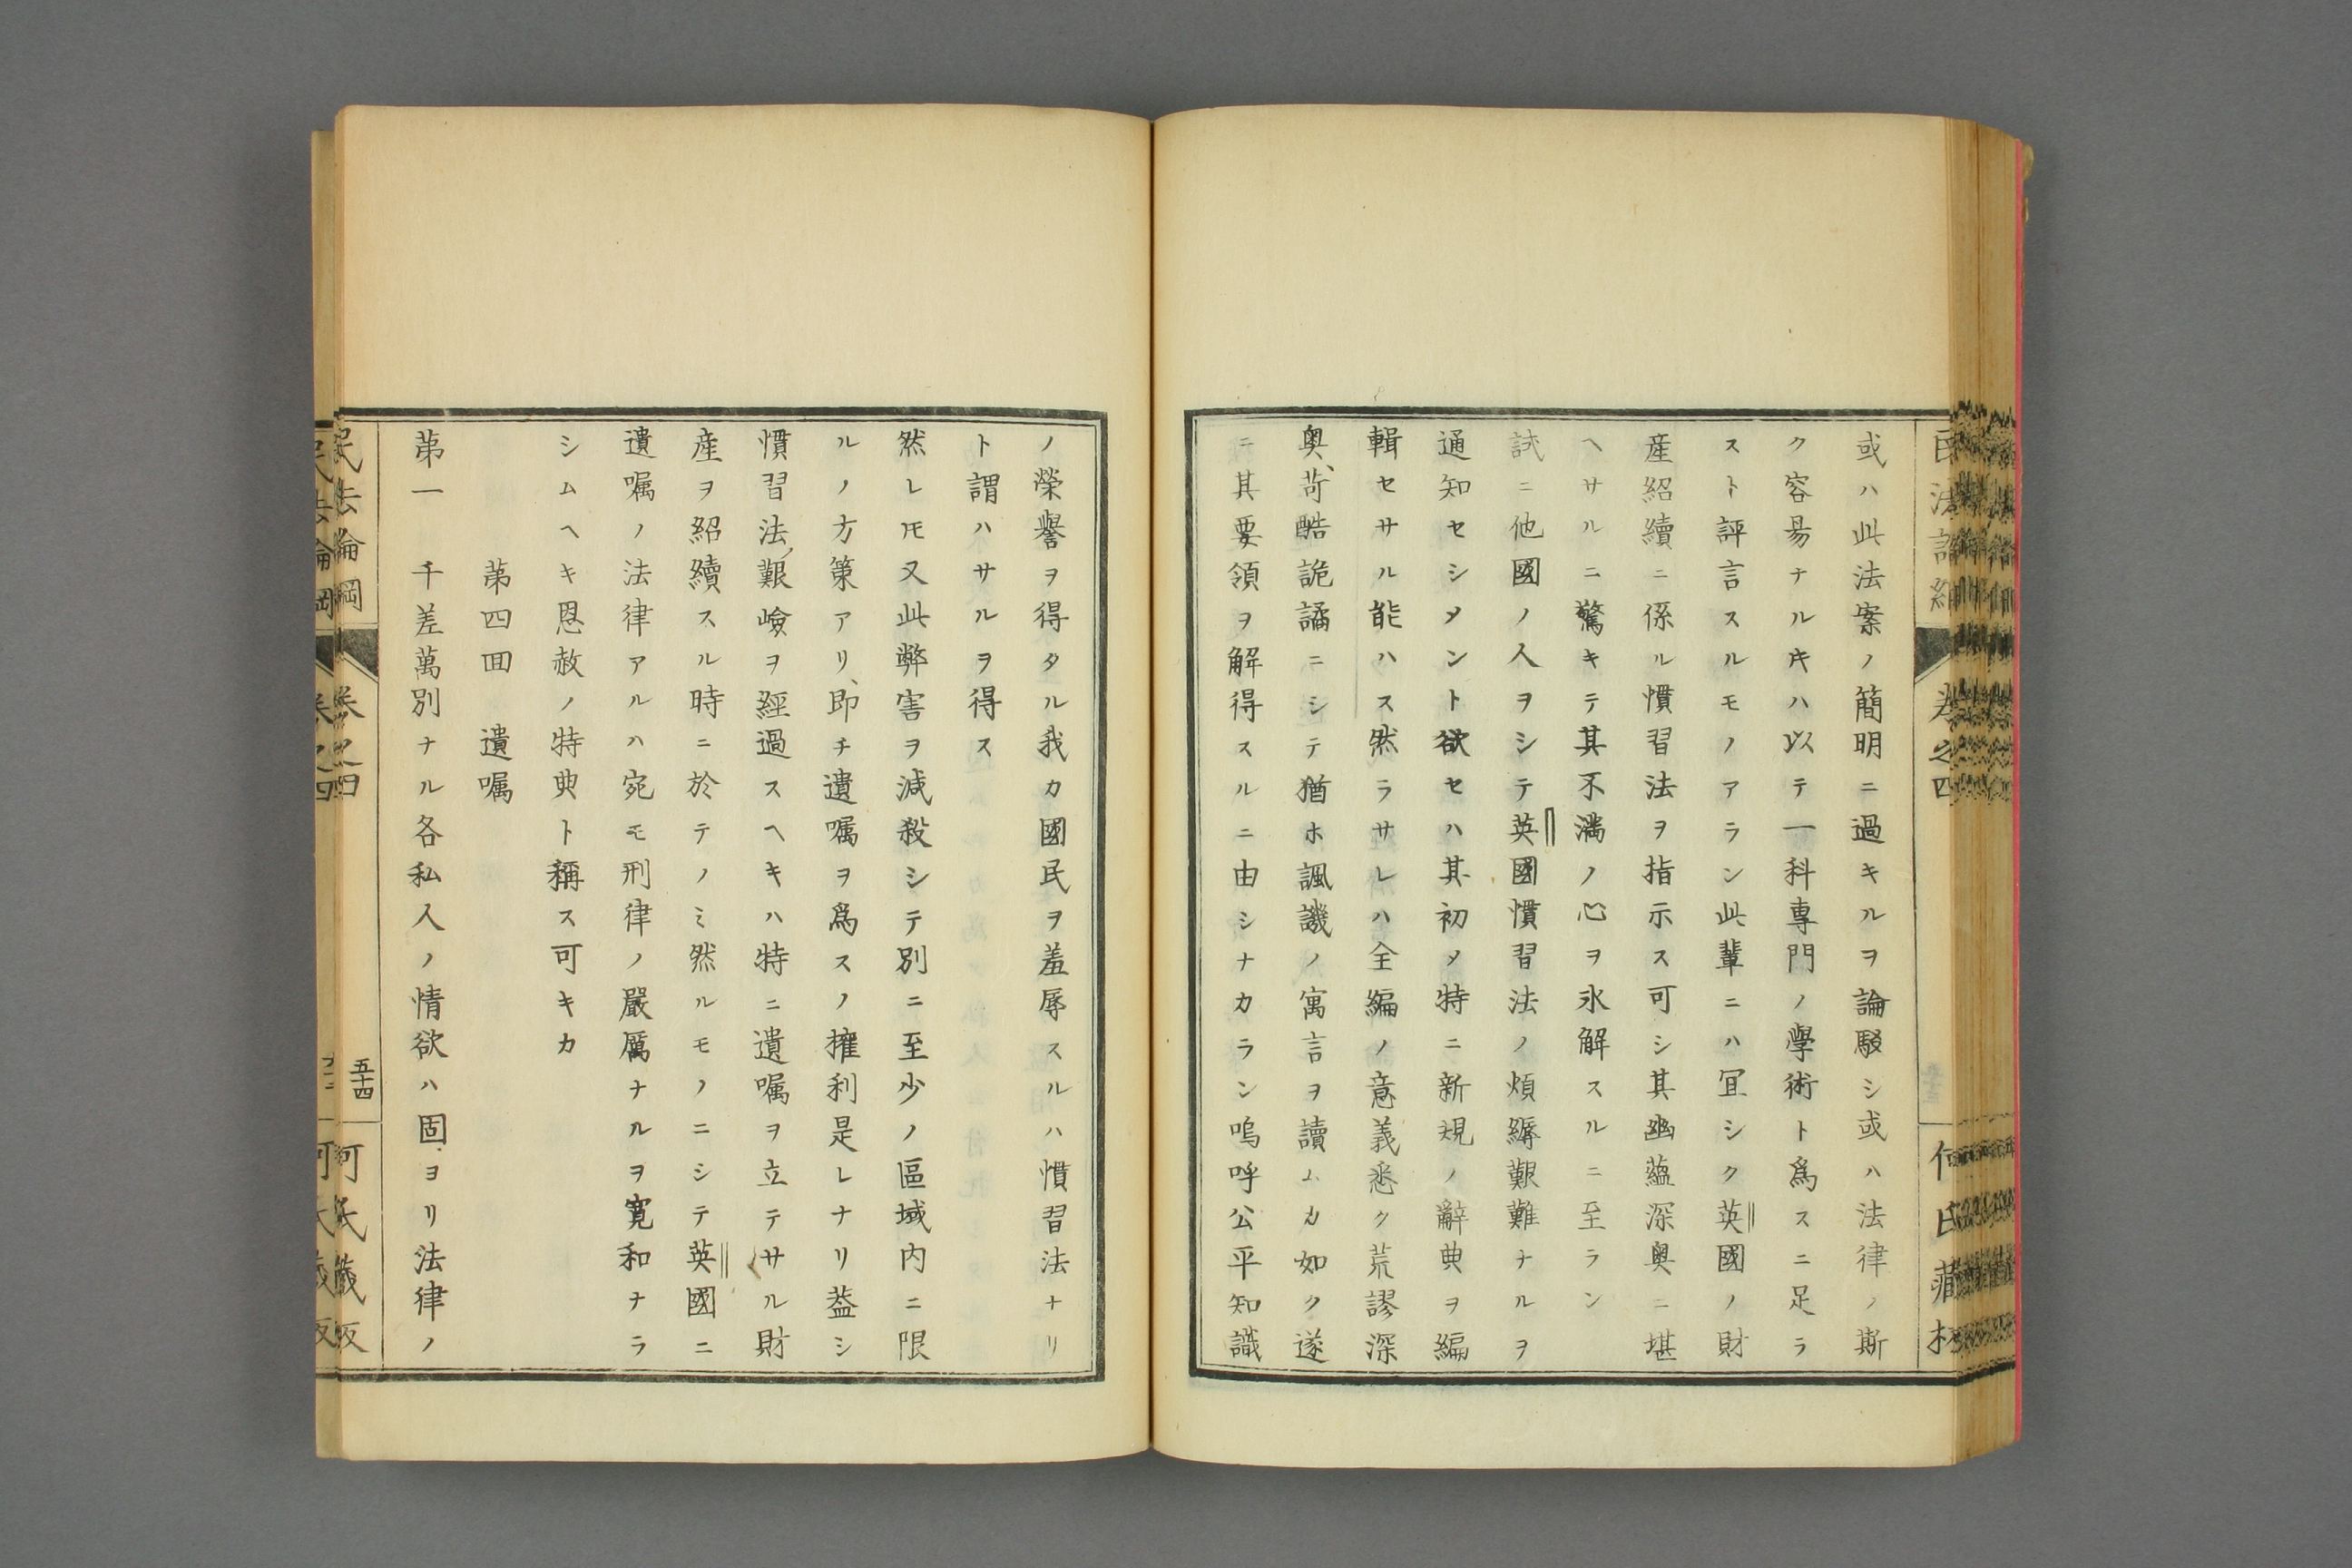 或ハ此法案ノ簡明ニ過キルヲ論駁シ或ハ法律ノ斯
ク容易ナルキハ以テ一科専門ノ學術ト爲スニ足ラ
スト評言スルモノアラン此輩ニハ冝シク英國ノ財
産紹續ニ係ル慣習法ヲ指示ス可シ其幽蘊深奥ニ堪
ヘサルニ驚キテ其不満ノ心ヲ氷解スルニ至ラン
試ニ他國ノ人ヲシテ英國慣習法ノ煩縟艱難ナルヲ
通知セシメント欲セハ其初メ特ニ新規ノ辭典ヲ編
輯セサル能ハス然ラサレハ全編ノ意義悉ク荒謬深
奥、苛酷詭譎ニシテ猶ホ諷譏ノ寓言ヲ讀ムカ如ク遂
ニ其要領ヲ解得スルニ由シナカラン嗚呼公平知識
ノ榮譽ヲ得タル我カ國民ヲ羞辱スルハ慣習法ナリ
ト謂ハサルヲ得ス
然レ𪜈又此弊害ヲ減殺シテ別ニ至少ノ區域内ニ限
ルノ方策アリ、即チ遺嘱ヲ爲スノ擁利是レナリ葢シ
慣習法、艱嶮ヲ經過スヘキハ特ニ遺嘱ヲ立テサル財
産ヲ紹續スル時ニ於テノミ然ルモノニシテ英國ニ
遺嘱ノ法律アルハ宛モ刑律ノ嚴厲ナルヲ寛和ナラ
シムヘキ恩赦ノ特典ト稱ス可キカ
苐四囬　遺嘱
苐一　千差萬別ナル各私人ノ情欲ハ固ヨリ法律ノ
民法論綱　卷之四　五十四　何氏藏板